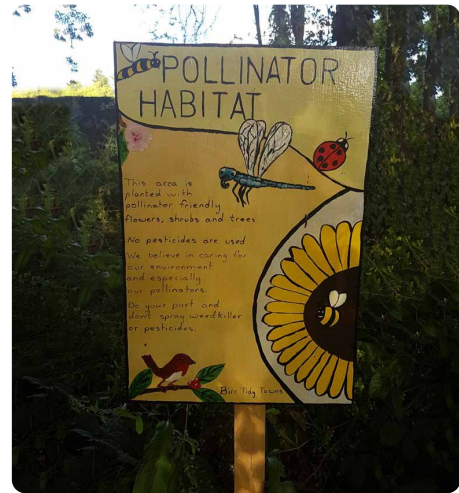 POLLINATOR
HABITAT
This area is
planted with
pollinator friendly
flowers, shrubs and trees
No pesticides are used
We believe in caring for
our environment
and especially
our pollinators.
Do your part and
don't spray weedkiller
or pesticides.
Birr Tidy Towns